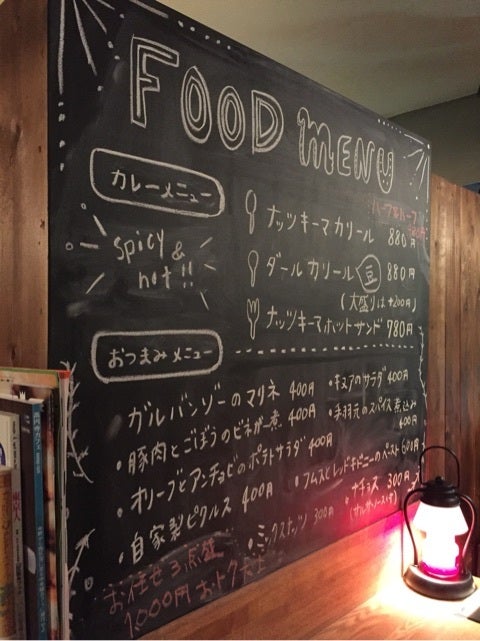 FOOD MENU
カレーメニュー
spicy & hot!!
ハーフ&ハーフ
ナッツキーマカリール 880円
ダールカリール 豆 880円
(大盛りは+200円)
ナッツキーマホットサンド 780円
おつまみメニュー
・ガルバンゾーのマリネ 400円
・豚肉とごぼうのビネガー煮 400円
・オリーブとアンチョビのポテトサラダ 400円
・自家製ピクルス 400円
・キヌアのサラダ 400円
・手羽元のスパイス煮込み 400円
・フムスとレッドキドニーのペースト 600円
・ナチョス 300円
(サルサソース付)
・ミックスナッツ 300円
お任せ3点盛
1000円 おトク